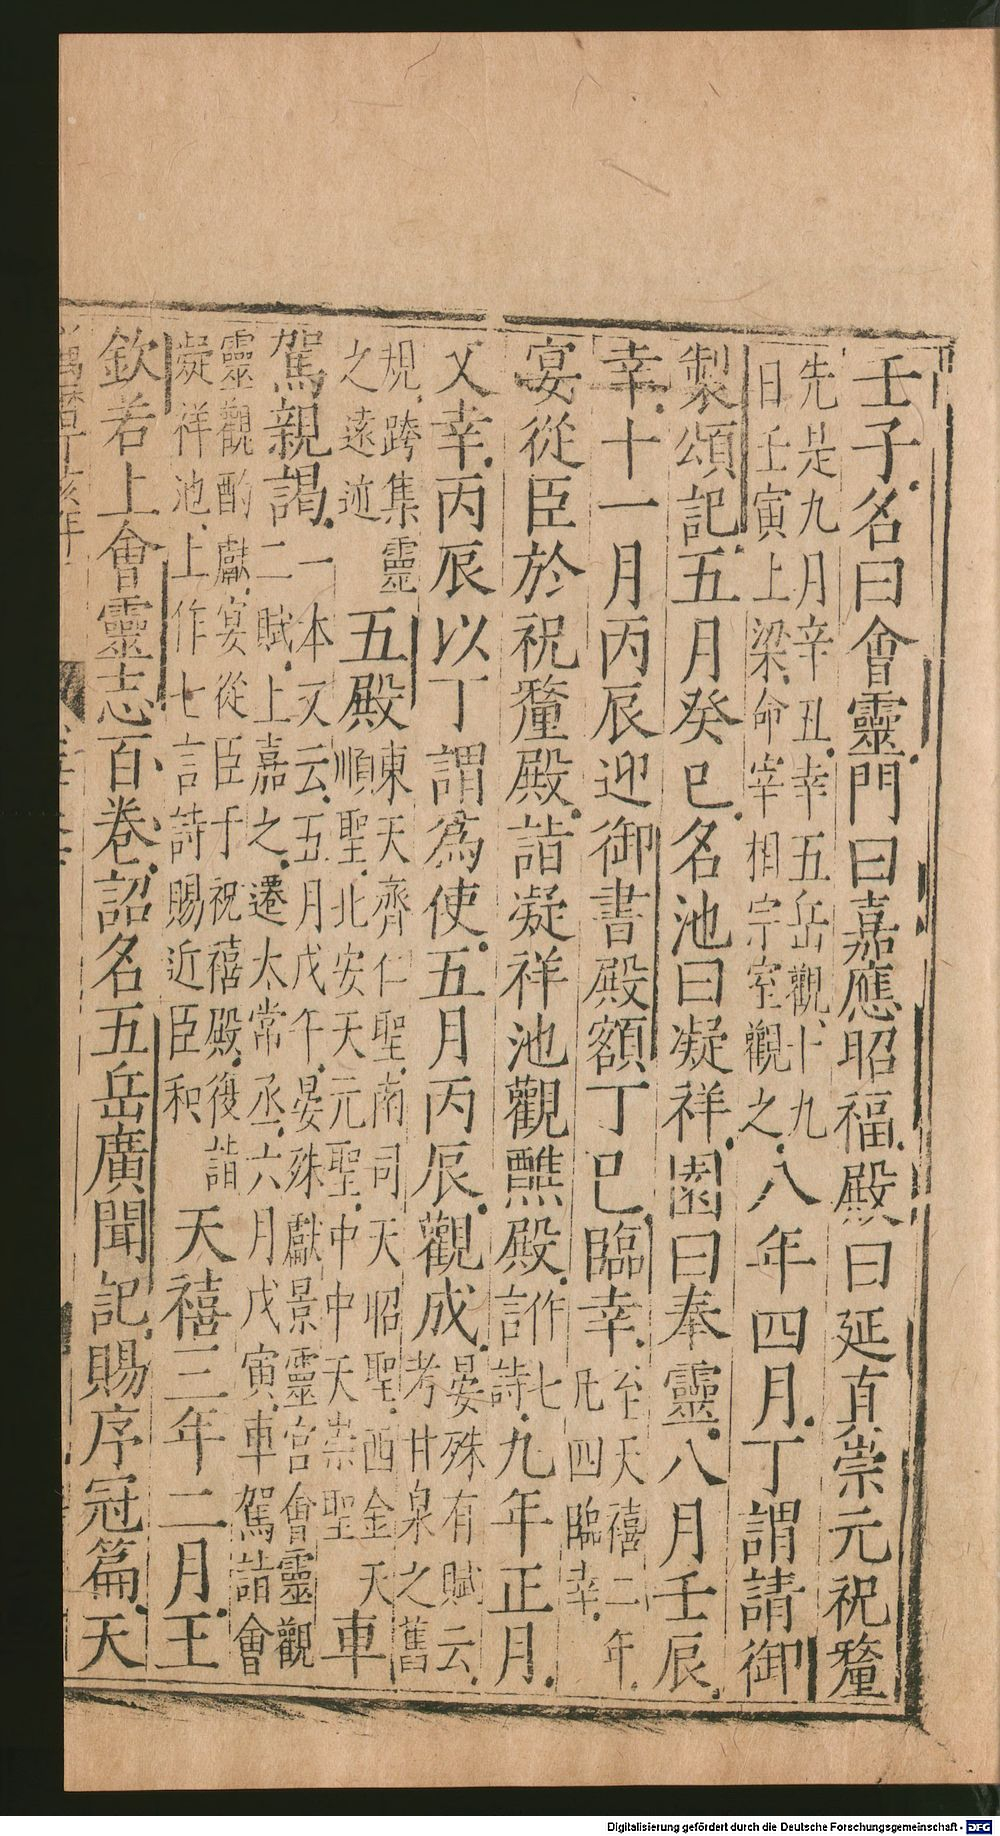 壬子名曰會靈門曰嘉應昭福殿曰延真崇元祝釐
先是九月辛丑幸五岳觀十九
日壬寅上梁命宰相宗室觀之八年四月丁謂請御
製頌記五月癸巳名池曰凝祥園曰奉靈八月壬辰
幸十一月丙辰迎御書殿額丁巳臨幸至天禧二年
凡四臨幸
宴從臣於祝釐殿詣凝祥池觀醮殿作七
言詩九年正月
又幸丙辰以丁謂為使五月丙辰觀成晏殊有賦云
考甘泉之舊
規跨集靈
之遠迹五殿東天齊仁聖南司天昭聖西金天
順聖北安天元聖中中天崇聖車
駕親謁一本又云五月戊午晏殊獻景靈宮會靈觀
二賦上嘉之遷太常丞六月戊寅車駕詣會
靈觀酌獻宴從臣于祝禧殿復詣
凝祥池上作七言詩賜近臣和天禧三年二月王
欽若上會靈志百卷詔名五岳廣聞記賜序冠篇天
萬曆丁亥年
Digitalisierung gefördert durch die Deutsche Forschungsgemeinschaft - DFG